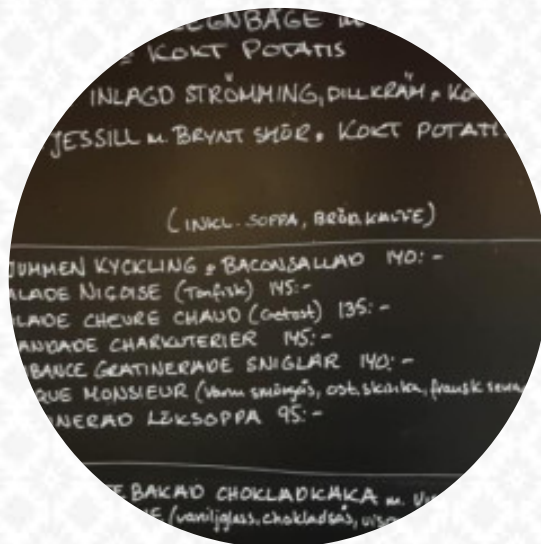 & KOKT POTATIS
INLAGD STRÖMMING, DILLKRÄM &
JESSILL M. BRYNT SMÖR & KOKT POTATIS
(INKL. SOPPA, BRÖD, KAFFE)
JUMMEN KYCKLING & BACONSALLAD 140:-
LADE NICOISE (Tonfisk) 145:-
LADE CHEVRE CHAUD (Getost) 135:-
ANDADE CHARKUTERIER 145:-
BANCE GRATINERADE SNIGLAR 140:-
QUE MONSIEUR (Varm smörgås, ost, skinka, fransk senap
INERAD LÖKSOPPA 95:-
BAKAD CHOKLADKAKA M.
(vaniljglass, chokladsås,